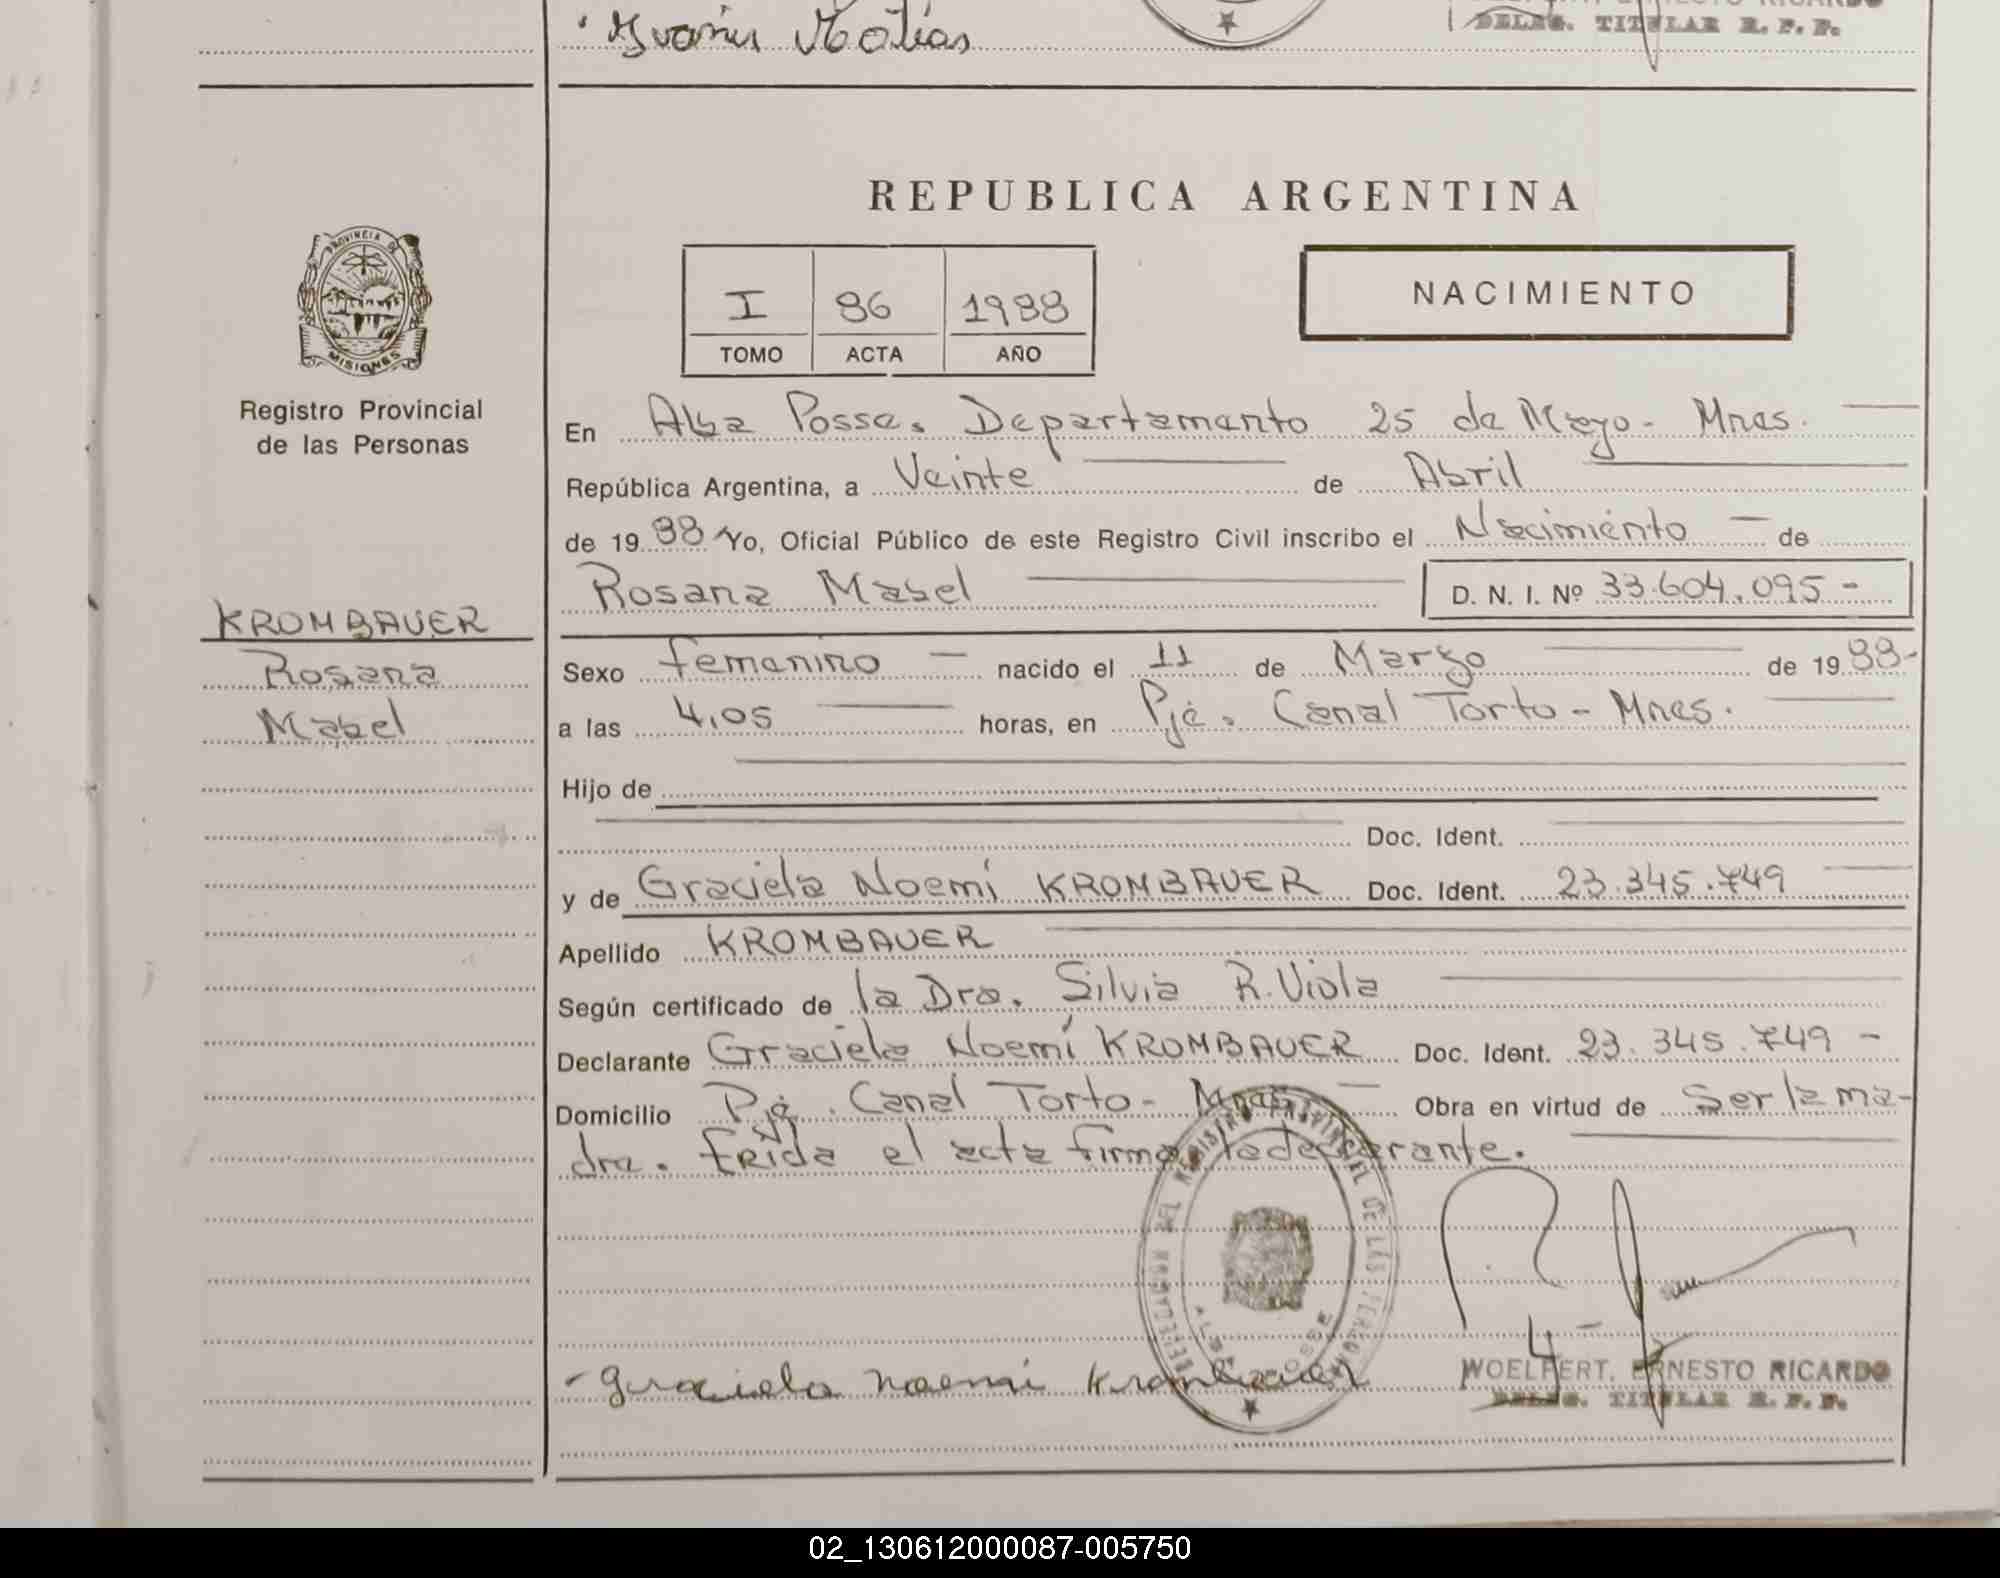 Matías
DELEG. TITULAR R. P. P.
REPUBLICA ARGENTINA
PROVINCIA DE
MISIONES
I 86 1988
TOMO ACTA AÑO
NACIMIENTO
Registro Provincial
de las Personas
En Alba Posse. Departamento 25 de Mayo - Mnes.
República Argentina, a Veinte de Abril
de 19 88 Yo, Oficial Público de este Registro Civil inscribo el Nacimiento de
Rosana Mabel D. N. I. Nº 33.604.095 -
KROMBAUER
Rosana
Mabel
Sexo femenino nacido el 11 de Marzo de 19 88-
a las 4,05 horas, en Pje. Canal Torto - Mnes.
Hijo de
Doc. Ident.
y de Graciela Noemí KROMBAUER Doc. Ident. 23.345.749
Apellido KROMBAUER
Según certificado de la Dra. Silvia R. Viola
Declarante Graciela Noemí KROMBAUER Doc. Ident. 23.345.749 -
Domicilio Pje. Canal Torto - Mnes. Obra en virtud de Ser la ma-
dre. Leida el acta firma la declarante.
ALBA POSSE
- Graciela Noemi Krombauer
WOELFERT, ERNESTO RICARDO
DELEG. TITULAR R. P. P.
02_130612000087-005750